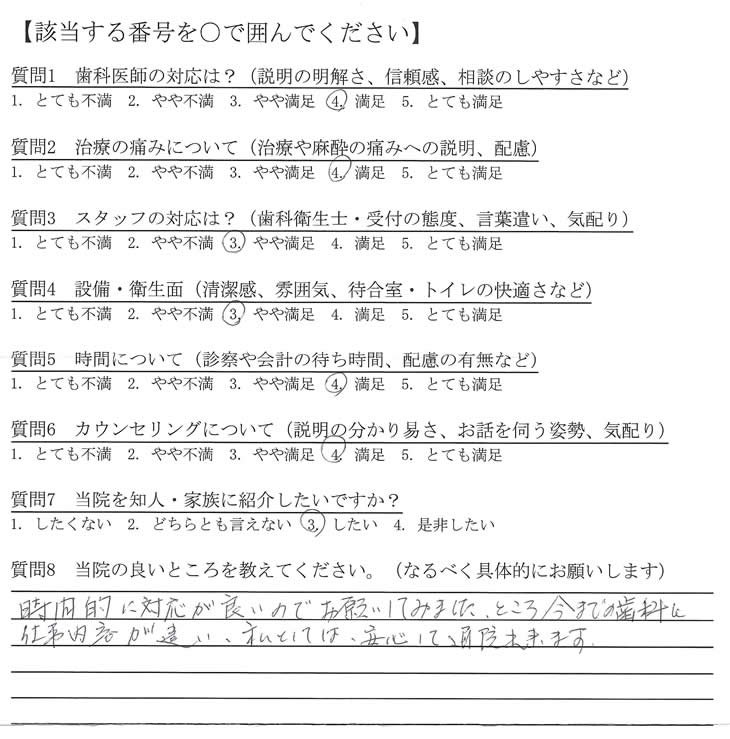 【該当する番号を○で囲んでください】
質問1 歯科医師の対応は？（説明の明解さ、信頼感、相談のしやすさなど）
1. とても不満 2. やや不満 3. やや満足 4. 満足 5. とても満足
質問2 治療の痛みについて（治療や麻酔の痛みへの説明、配慮）
1. とても不満 2. やや不満 3. やや満足 4. 満足 5. とても満足
質問3 スタッフの対応は？（歯科衛生士・受付の態度、言葉遣い、気配り）
1. とても不満 2. やや不満 3. やや満足 4. 満足 5. とても満足
質問4 設備・衛生面（清潔感、雰囲気、待合室・トイレの快適さなど）
1. とても不満 2. やや不満 3. やや満足 4. 満足 5. とても満足
質問5 時間について（診察や会計の待ち時間、配慮の有無など）
1. とても不満 2. やや不満 3. やや満足 4. 満足 5. とても満足
質問6 カウンセリングについて（説明の分かり易さ、お話を伺う姿勢、気配り）
1. とても不満 2. やや不満 3. やや満足 4. 満足 5. とても満足
質問7 当院を知人・家族に紹介したいですか？
1. したくない 2. どちらとも言えない 3. したい 4. 是非したい
質問8 当院の良いところを教えてください。（なるべく具体的にお願いします）
時間的に対応が良いのでお願いしてみました、ところ今までの歯科と
仕事内容が違い、私としては、安心して通院出来ます